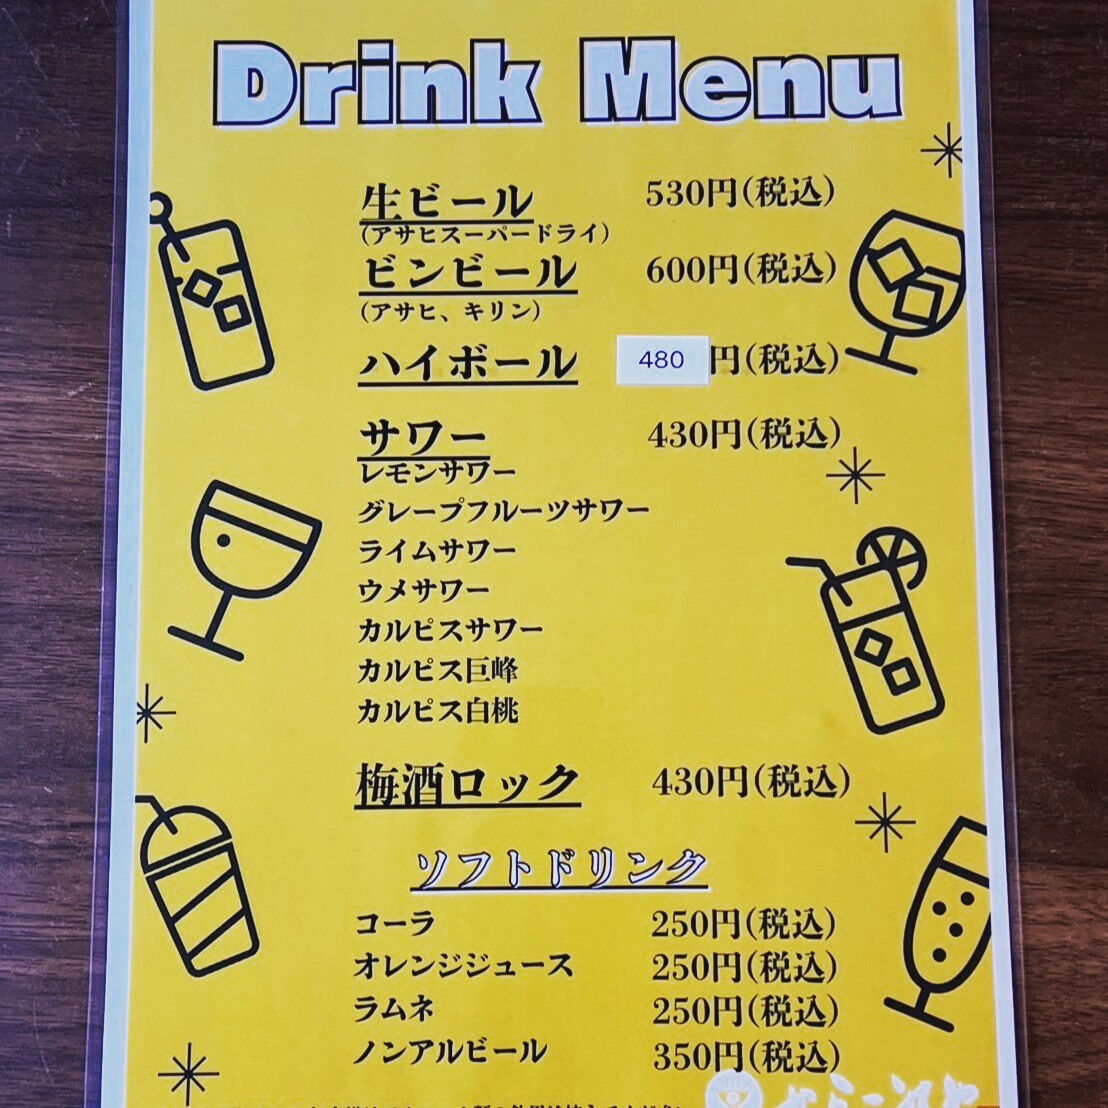 Drink Menu
生ビール 530円(税込)
(アサヒスーパードライ)
ビンビール 600円(税込)
(アサヒ、キリン)
ハイボール 480円(税込)
サワー 430円(税込)
レモンサワー
グレープフルーツサワー
ライムサワー
ウメサワー
カルピスサワー
カルピス巨峰
カルピス白桃
梅酒ロック 430円(税込)
ソフトドリンク
コーラ 250円(税込)
オレンジジュース 250円(税込)
ラムネ 250円(税込)
ノンアルビール 350円(税込)